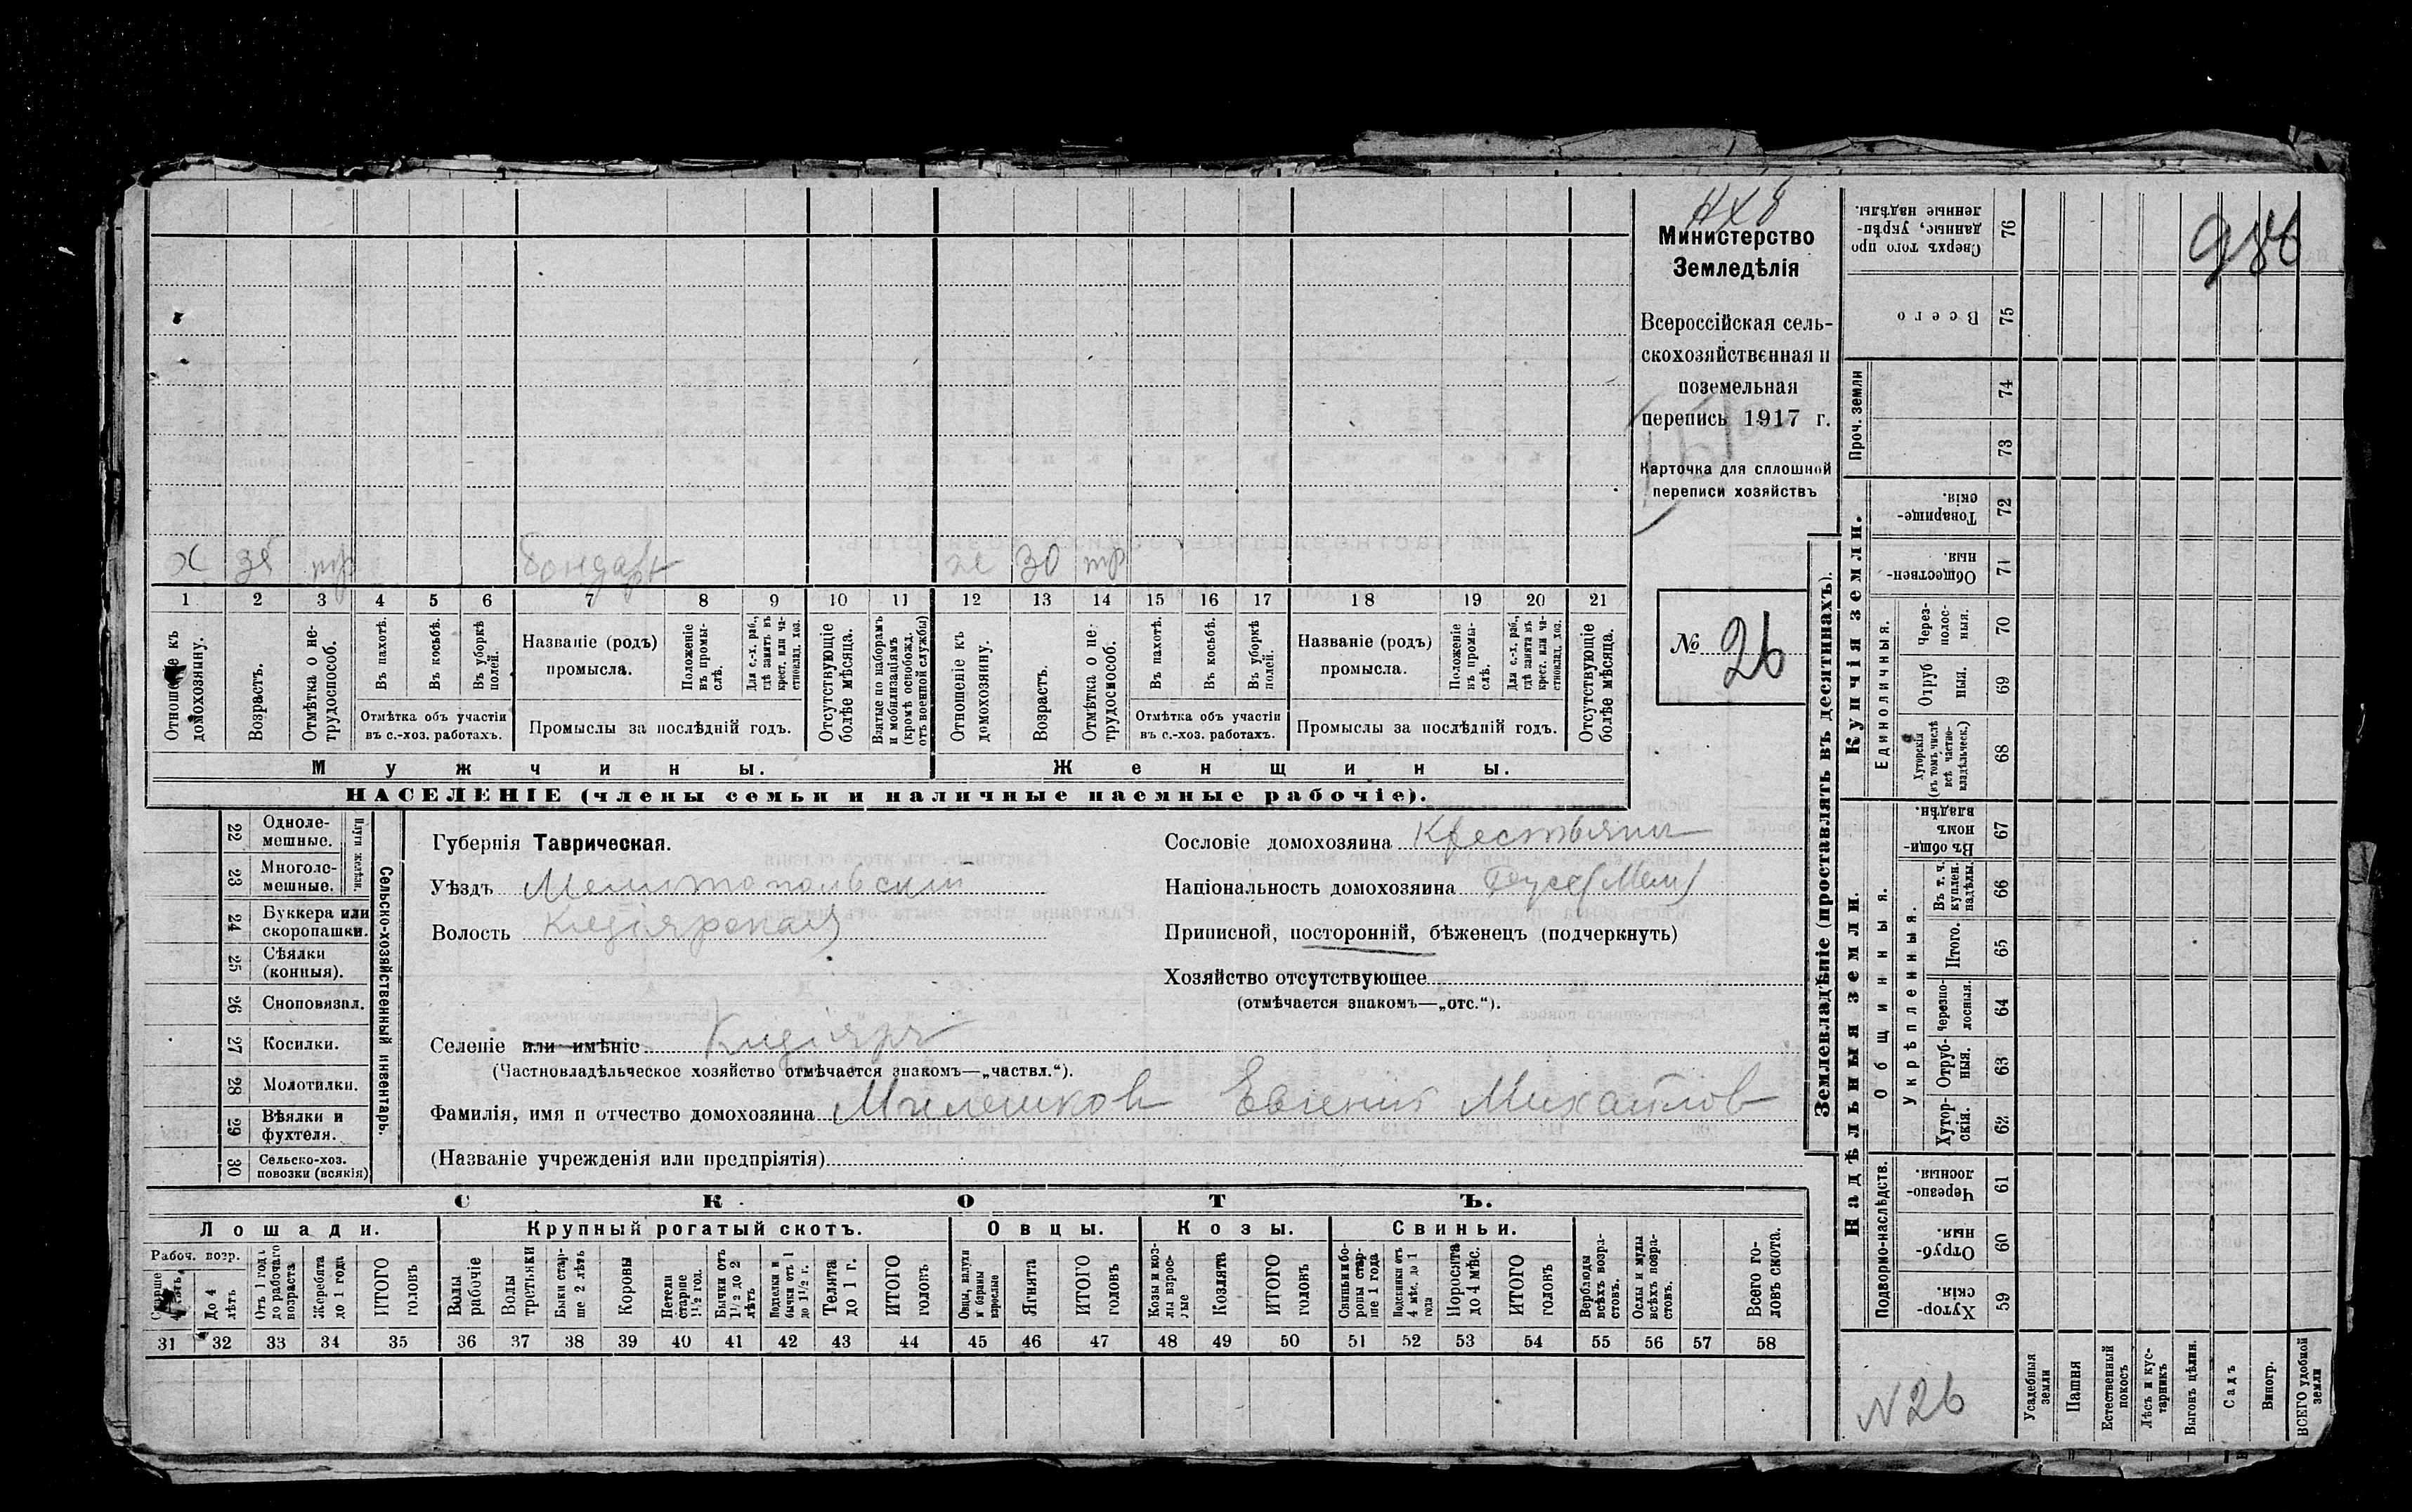 Министерство
Земледѣлія
Всероссійская сель-
скохозяйственная и
поземельная
перепись 1917 г.
Карточка для сплошной
переписи хозяйствъ
№ 26
х 38 тр Бондарь ж 30 тр
1 2 3 4 5 6 7 8 9 10 11 12 13 14 15 16 17 18 19 20 21
Отношеніе къ домохозяину.
Возрастъ.
Отмѣтка о не-трудоспособ.
Въ пахотѣ.
Въ косьбѣ.
Въ уборкѣ полей.
Отмѣтка объ участіи
въ с.-хоз. работахъ.
Названіе (родъ)
промысла.
Положеніе въ промы-слѣ.
Для с.-х. раб., гдѣ занятъ въ крест. или ча-стновлад. хоз.
Промыслы за послѣдній годъ.
Отсутствующіе болѣе мѣсяца.
Взятые по наборамъ и мобилизаціямъ (кромѣ освобожд. отъ военной службы)
Отношеніе къ домохозяину.
Возрастъ.
Отмѣтка о не-трудоспособ.
Въ пахотѣ.
Въ косьбѣ.
Въ уборкѣ полей.
Отмѣтка объ участіи
въ с.-хоз. работахъ.
Названіе (родъ)
промысла.
Положеніе въ промы-слѣ.
Для с.-х. раб., гдѣ занята въ крест. или ча-стновлад. хоз.
Промыслы за послѣдній годъ.
Отсутствующіе болѣе мѣсяца.
Мужчины. Женщины.
НАСЕЛЕНІЕ (члены семьи и наличные наемные рабочіе).
22 Одноле-мешные.
23 Многоле-мешные.
Плуги желѣзн.
24 Буккера или скоропашки.
25 Сѣялки (конныя).
26 Сноповязал.
27 Косилки.
28 Молотилки.
29 Вѣялки и фухтеля.
30 Сельско-хоз. повозки (всякія)
Сельско-хозяйственный инвентарь.
Губернія Таврическая.
Уѣздъ Мелитопольскій
Волость Кизіярская
Сословіе домохозяина Крестьянин
Національность домохозяина
Приписной, посторонній, бѣженецъ (подчеркнуть)
Хозяйство отсутствующее
(отмѣчается знакомъ—„отс.“).
Селеніе или имѣніе Кизіяръ
(Частновладѣльческое хозяйство отмѣчается знакомъ—„частвл.“).
Фамилія, имя и отчество домохозяина Милешков Евгений Михайлов
(Названіе учрежденія или предпріятія)
СКОТЪ.
Лошади. Крупный рогатый скотъ. Овцы. Козы. Свиньи.
Рабоч. возр.
Старше 4 лѣтъ
До 4 лѣтъ
Отъ 1 года до рабочаго возраста
Жеребята до 1 года
ИТОГО головъ
Волы рабочіе
Волы третьяки
Быки стар-ше 2 лѣтъ
Коровы
Нетели старше 1½ год.
Бычки отъ 1½ до 2 лѣтъ
Подтелки и бычки отъ 1 до 1½ г.
Телята до 1 г.
ИТОГО головъ
Овцы, валухи и бараны взрослые
Ягнята
ИТОГО головъ
Козы и коз-лы взрос-лые
Козлята
ИТОГО головъ
Свиньи и бо-ровы стар-ше 1 года
Подсвинки отъ 4 мѣс. до 1 года
Поросята до 4 мѣс.
ИТОГО головъ
Верблюды всѣхъ возра-стовъ.
Ослы и мулы всѣхъ возра-стовъ.
Всего го-ловъ скота.
31 32 33 34 35 36 37 38 39 40 41 42 43 44 45 46 47 48 49 50 51 52 53 54 55 56 57 58
Землевладѣніе (проставлять въ десятинахъ).
Купчія земли.
Надѣльныя земли.
76 Сверхъ того про данные, укрѣп-ленные надѣлы.
75 Всего
Проч. земли
74
73
72 Товарище-скія.
71 Обществен-ныя.
Единоличныя.
70 Через-полос-ныя.
69 Отруб ныя.
68 Хуторскія (въ томъ числѣ всѣ частно-владѣльческ.)
Общинныя.
67 Въ общи-номъ владѣн.
Укрѣпленныя.
66 Въ т. ч. куплен. надѣлы.
65 Итого.
64 Черезпо-лосныя.
63 Отруб-ныя.
62 Хутор-скія.
Подворно-наслѣдств.
61 Черезпо-лосныя.
60 Отруб-ныя.
59 Хутор-скія.
N 26
Усадебныя земли
Пашня
Естественный покосъ
Лѣсъ и кус-тарникъ
Выгонъ цѣлин.
Садъ
Виногр.
ВСЕГО удобной земли